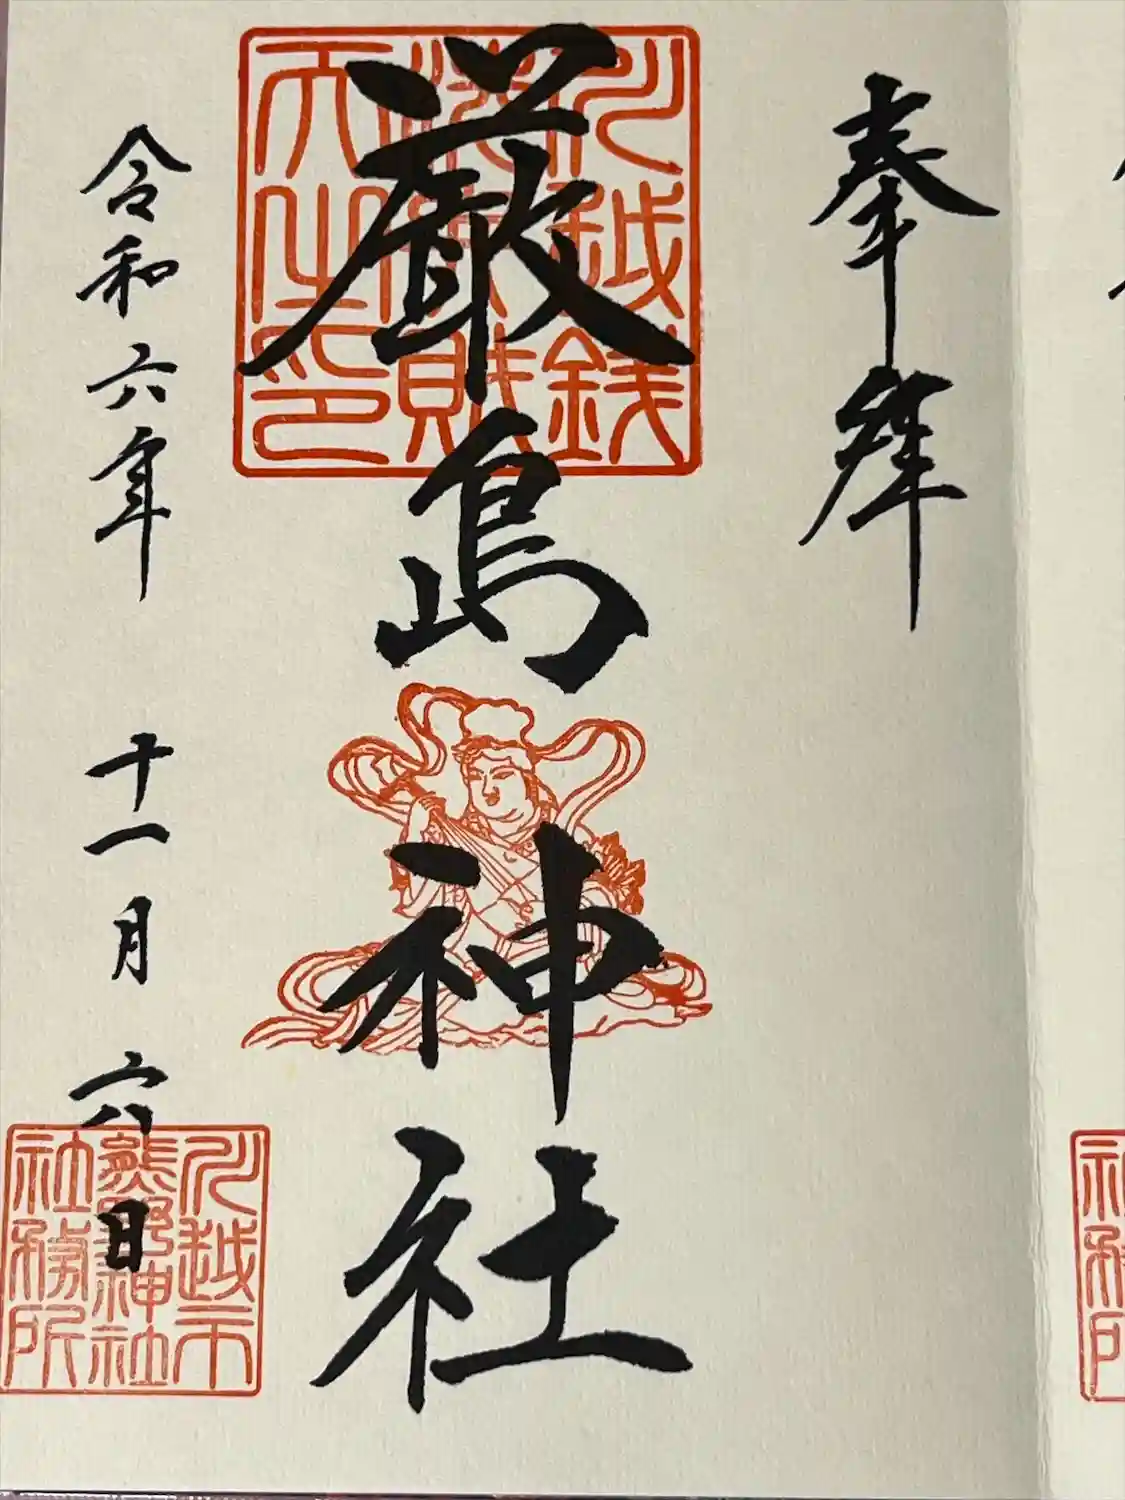 奉拝
厳島神社
川越銭
洗弁財
天之印
令和六年 十一月 六日
川越市
熊野神社
社務所